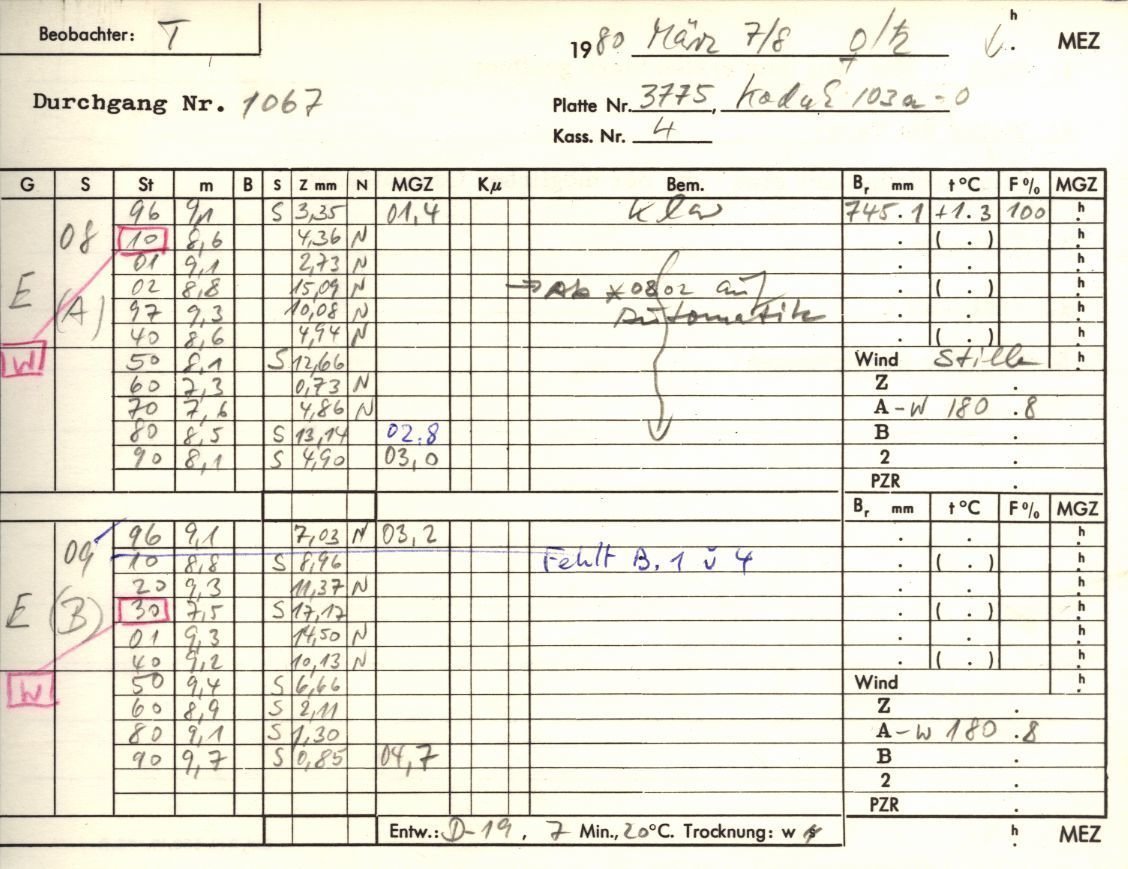 Beobachter: T
1980 März 7/8 h. MEZ
Durchgang Nr. 1067
Platte Nr. 3775, Kodak 103a-O
Kass. Nr. 4
G S St m B S Z mm N MGZ Kμ Bem. Br mm t°C F% MGZ
96 9,1 S 3,35 01,4 klar 745.1 +1.3 100 h
08 10 8,6 4,36 N . ( . ) h
01 9,1 2,73 N . . h
E 02 8,8 15,09 N → Ab *0802 auf . ( . ) h
(A) 97 9,3 10,08 N Automatik . . h
40 8,6 4,94 N . ( . ) h
W 50 8,1 S 12,66 Wind Stille h
60 7,3 0,73 N Z .
70 7,6 4,86 N A-W 180 .8
80 8,5 S 13,14 02.8 B .
90 8,1 S 4,90 03,0 2 .
PZR .
Br mm t°C F% MGZ
96 9,1 7,03 N 03,2 . . h
09 10 8,8 S 8,96 Fehlt B. 1 u 4 . ( . ) h
20 9,3 11,37 N . . h
E (B) 30 7,5 S 17,17 . ( . ) h
01 9,3 14,50 N . . h
40 9,2 10,13 N . ( . ) h
W 50 9,4 S 6,66 Wind h
60 8,9 S 2,11 Z .
80 9,1 S 1,30 A-W 180 .8
90 9,7 S 0,85 04,7 B .
2 .
PZR .
Entw.: D-19, 7 Min., 20°C. Trocknung: w h. MEZ